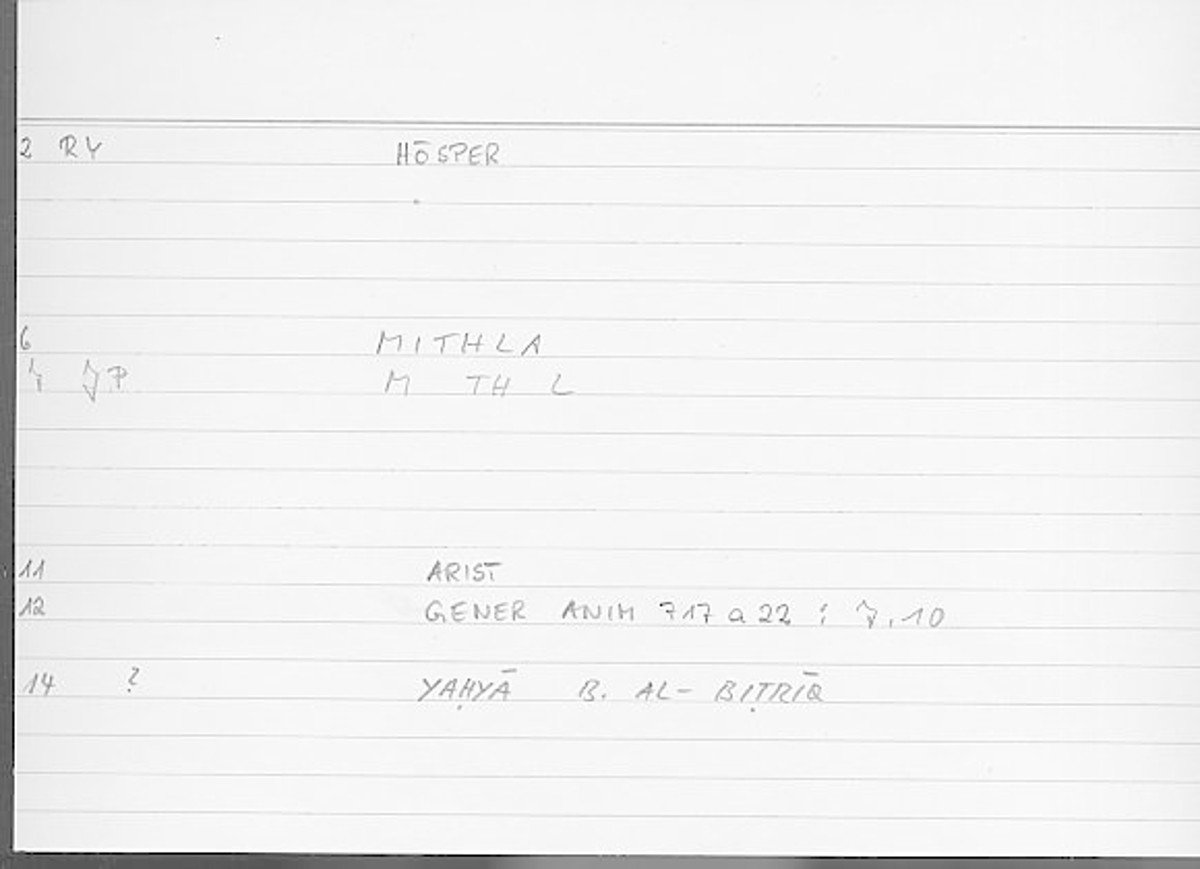 2 RY HŌSPER
6 MITHLA
P M TH L
11 ARIST
12 GENER ANIM 717 a 22 : 7, 10
14 ? YAḤYĀ B. AL- BIṬRĪQ